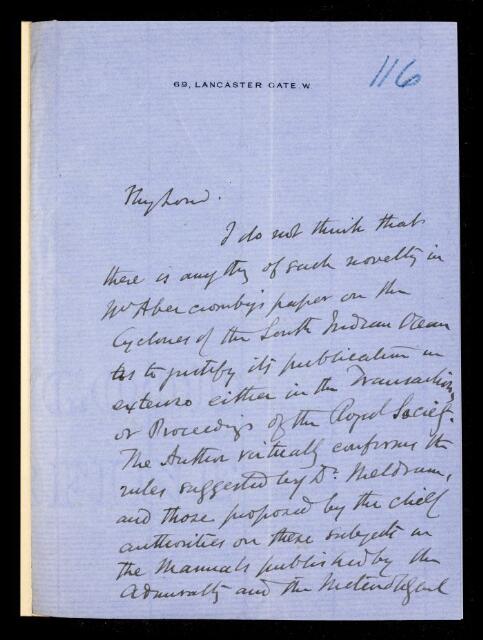 116
69, LANCASTER GATE. W.
My Lord.
I do not think that
there is any thing of such novelty in
Mr Abercromby's paper on the
Cyclones of the South Indian Ocean
as to justify its publication in
extenso either in the Transactions
or Proceedings of the Royal Society.
The Author virtually confirms the
rules suggested by Dr. Meldrum,
and those proposed by the chief
authorities on these subjects in
the Manuals published by the
Admiralty and the Meteorological